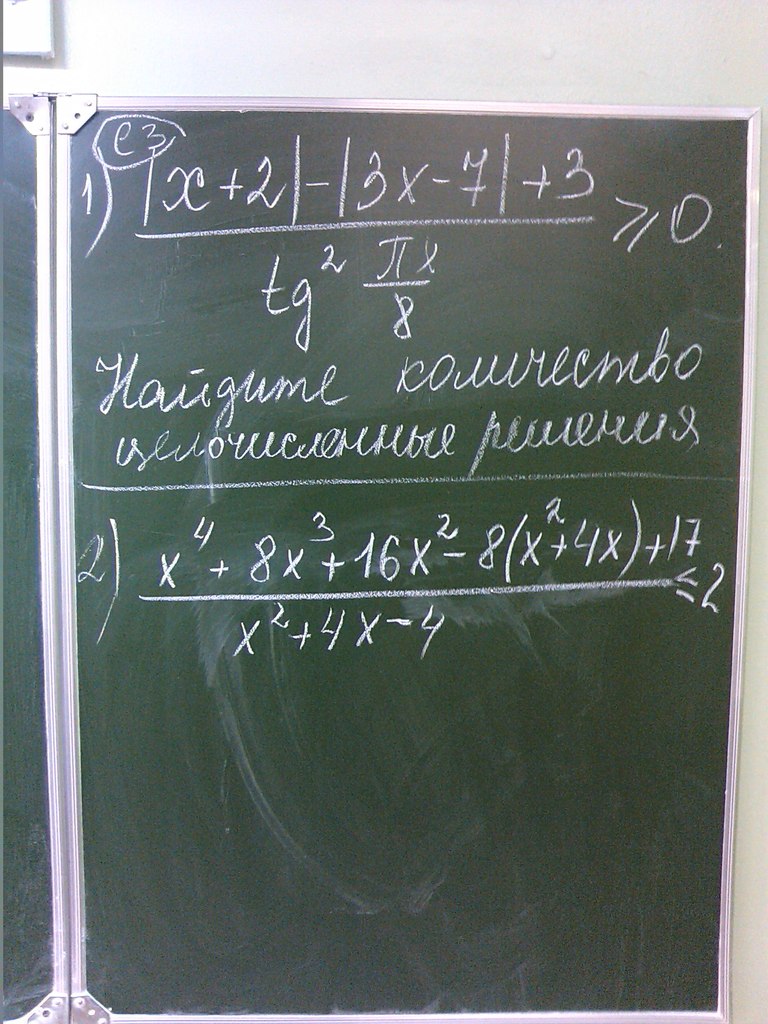 C3
1) |x+2|-|3x-7|+3 ≥ 0.
tg² πx
8
Найдите количество
целочисленные решения
2) x⁴+8x³+16x²-8(x²+4x)+17 ≤ 2
x²+4x-4